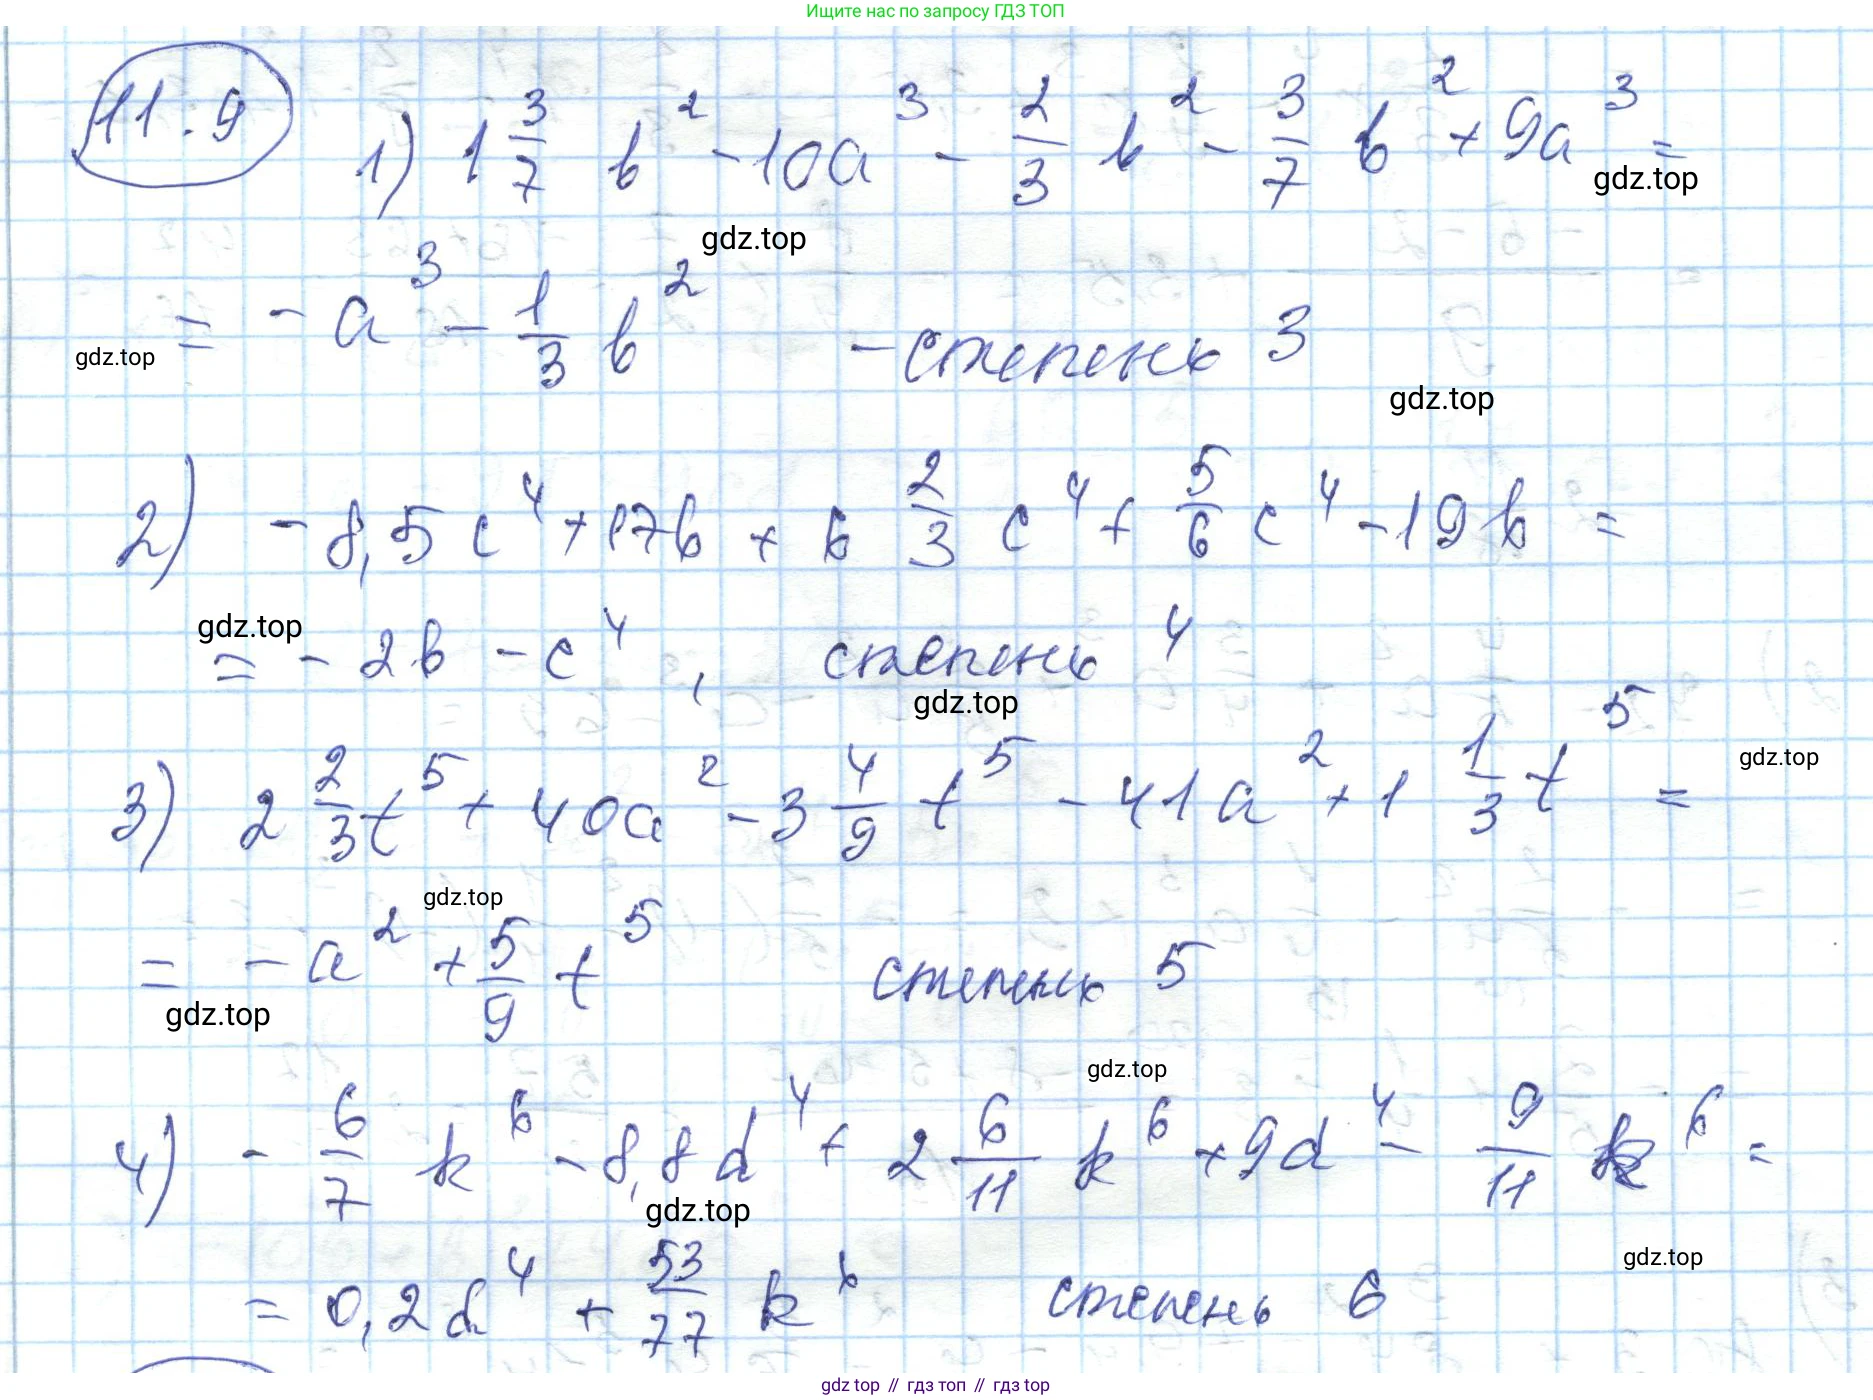 Ищите нас по запросу ГДЗ ТОП
11.9
1) 1 3/7 b² - 10a³ - 2/3 b² - 3/7 b² + 9a³ =
gdz.top
gdz.top
= - a³ - 1/3 b² - степень 3
gdz.top
gdz.top
2) - 8,5c⁴ + 17b + 6 2/3 c⁴ + 5/6 c⁴ - 19b =
gdz.top
= - 2b - c⁴, степень 4
gdz.top
3) 2 2/3 t⁵ + 40a² - 3 4/9 t⁵ - 41a² + 1 1/3 t⁵ =
gdz.top
gdz.top
= - a² + 5/9 t⁵ степень 5
gdz.top
gdz.top
4) - 6/7 k⁶ - 8,8d⁴ + 2 6/11 k⁶ + 9d⁴ - 9/11 k⁶ =
gdz.top
gdz.top
= 0,2d⁴ + 53/77 k⁶ степень 6
gdz top // гдз топ // гдз top